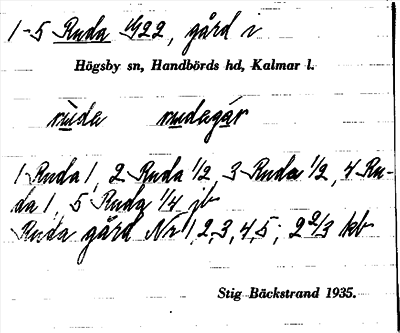 1-5 Ruda 22, gård i
Högsby sn, Handbörds hd, Kalmar l.
ruda rudagår
1 Ruda 1, 2 Ruda 1/2, 3 Ruda 1/2, 4 Ru-
da 1, 5 Ruda 1/4 jb
Ruda gård Nr 1,2,3,4,5; 2 2/3 kb
Stig Bäckstrand 1935.